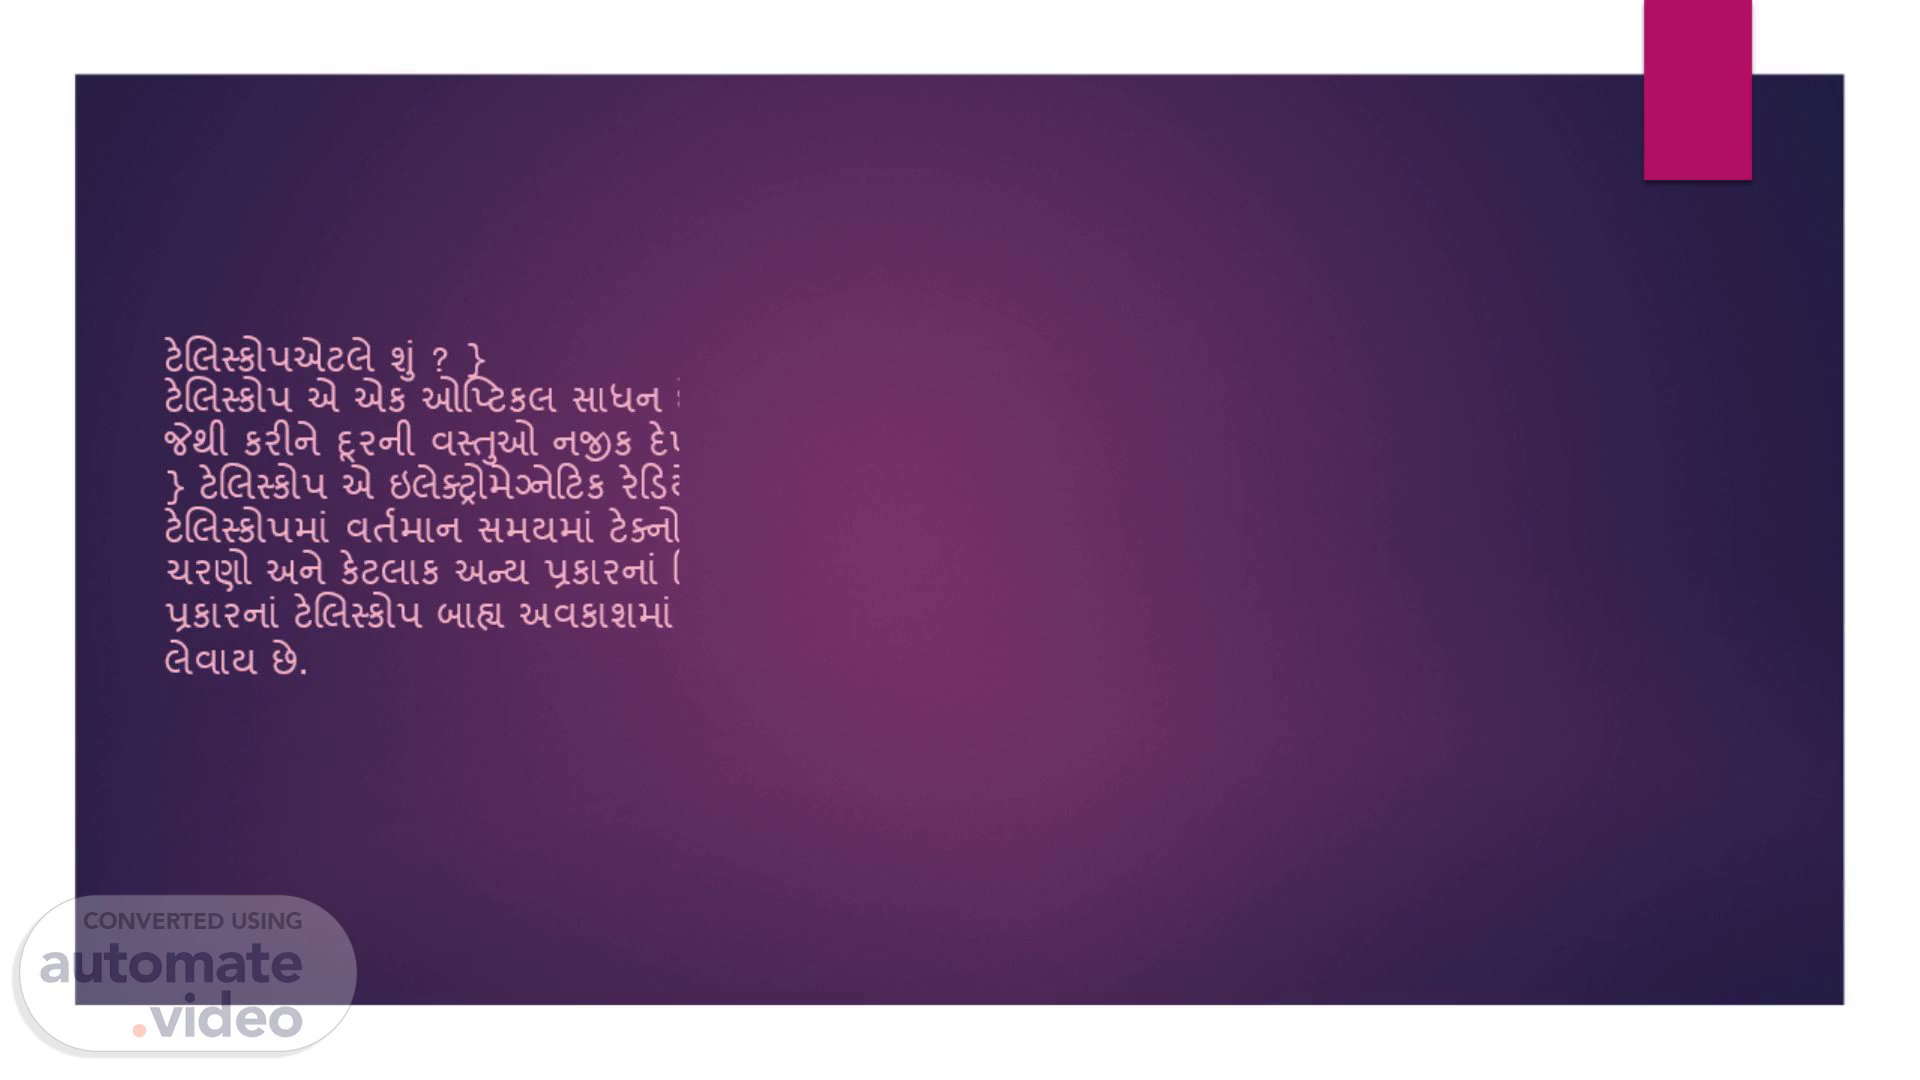 ટેલિસ્કોપએટલે શું ? }
ટેલિસ્કોપ એ એક ઓપ્ટિકલ સાધન
જેથી કરીને દૂરની વસ્તુઓ નજીક
} ટેલિસ્કોપ એ ઇલેક્ટ્રોમેગ્નેટિક
ટેલિસ્કોપમાં વર્તમાન સમયમાં
ચરણો અને કેટલાક અન્ય પ્રકારનાં
પ્રકારનાં ટેલિસ્કોપ બાહ્ય અવકાશમાં
લેવાય છે.
CONVERTED USING
automate
.video